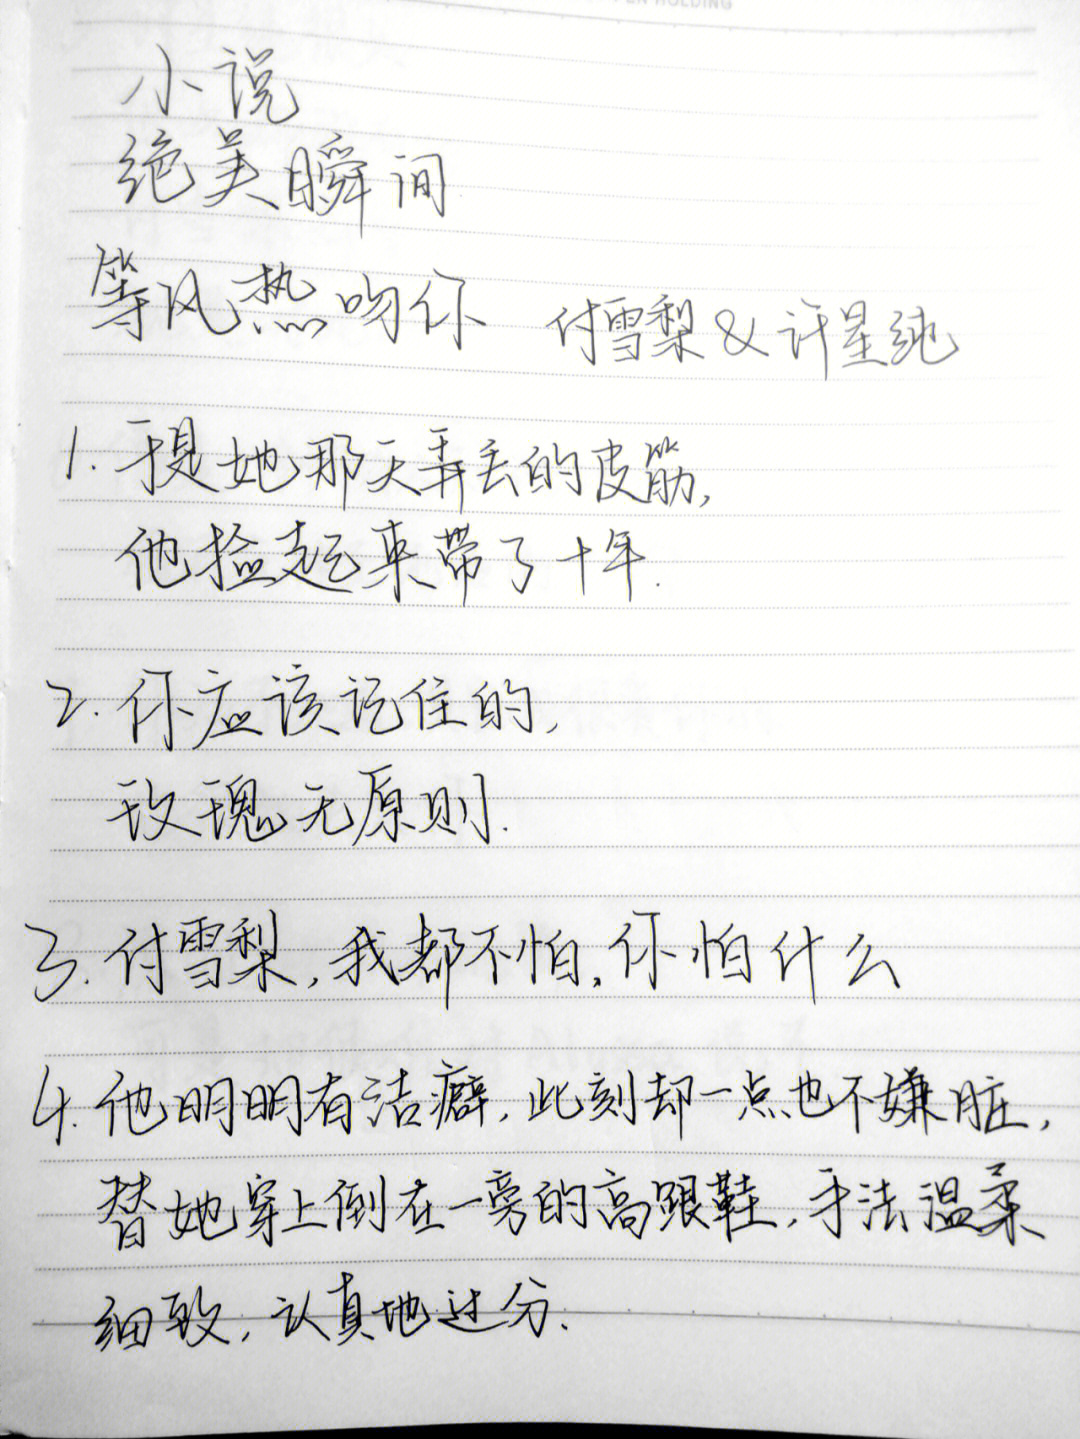 小说
绝美瞬间
等风热吻你 付雪梨&许星纯
1. 于是她那天弄丢的皮筋,
他捡起来带了十年.
2. 你应该记住的,
玫瑰无原则.
3. 付雪梨,我都不怕,你怕什么
4. 他明明有洁癖,此刻却一点也不嫌脏,
替她穿上倒在一旁的高跟鞋,手法温柔
细致,认真地过分.